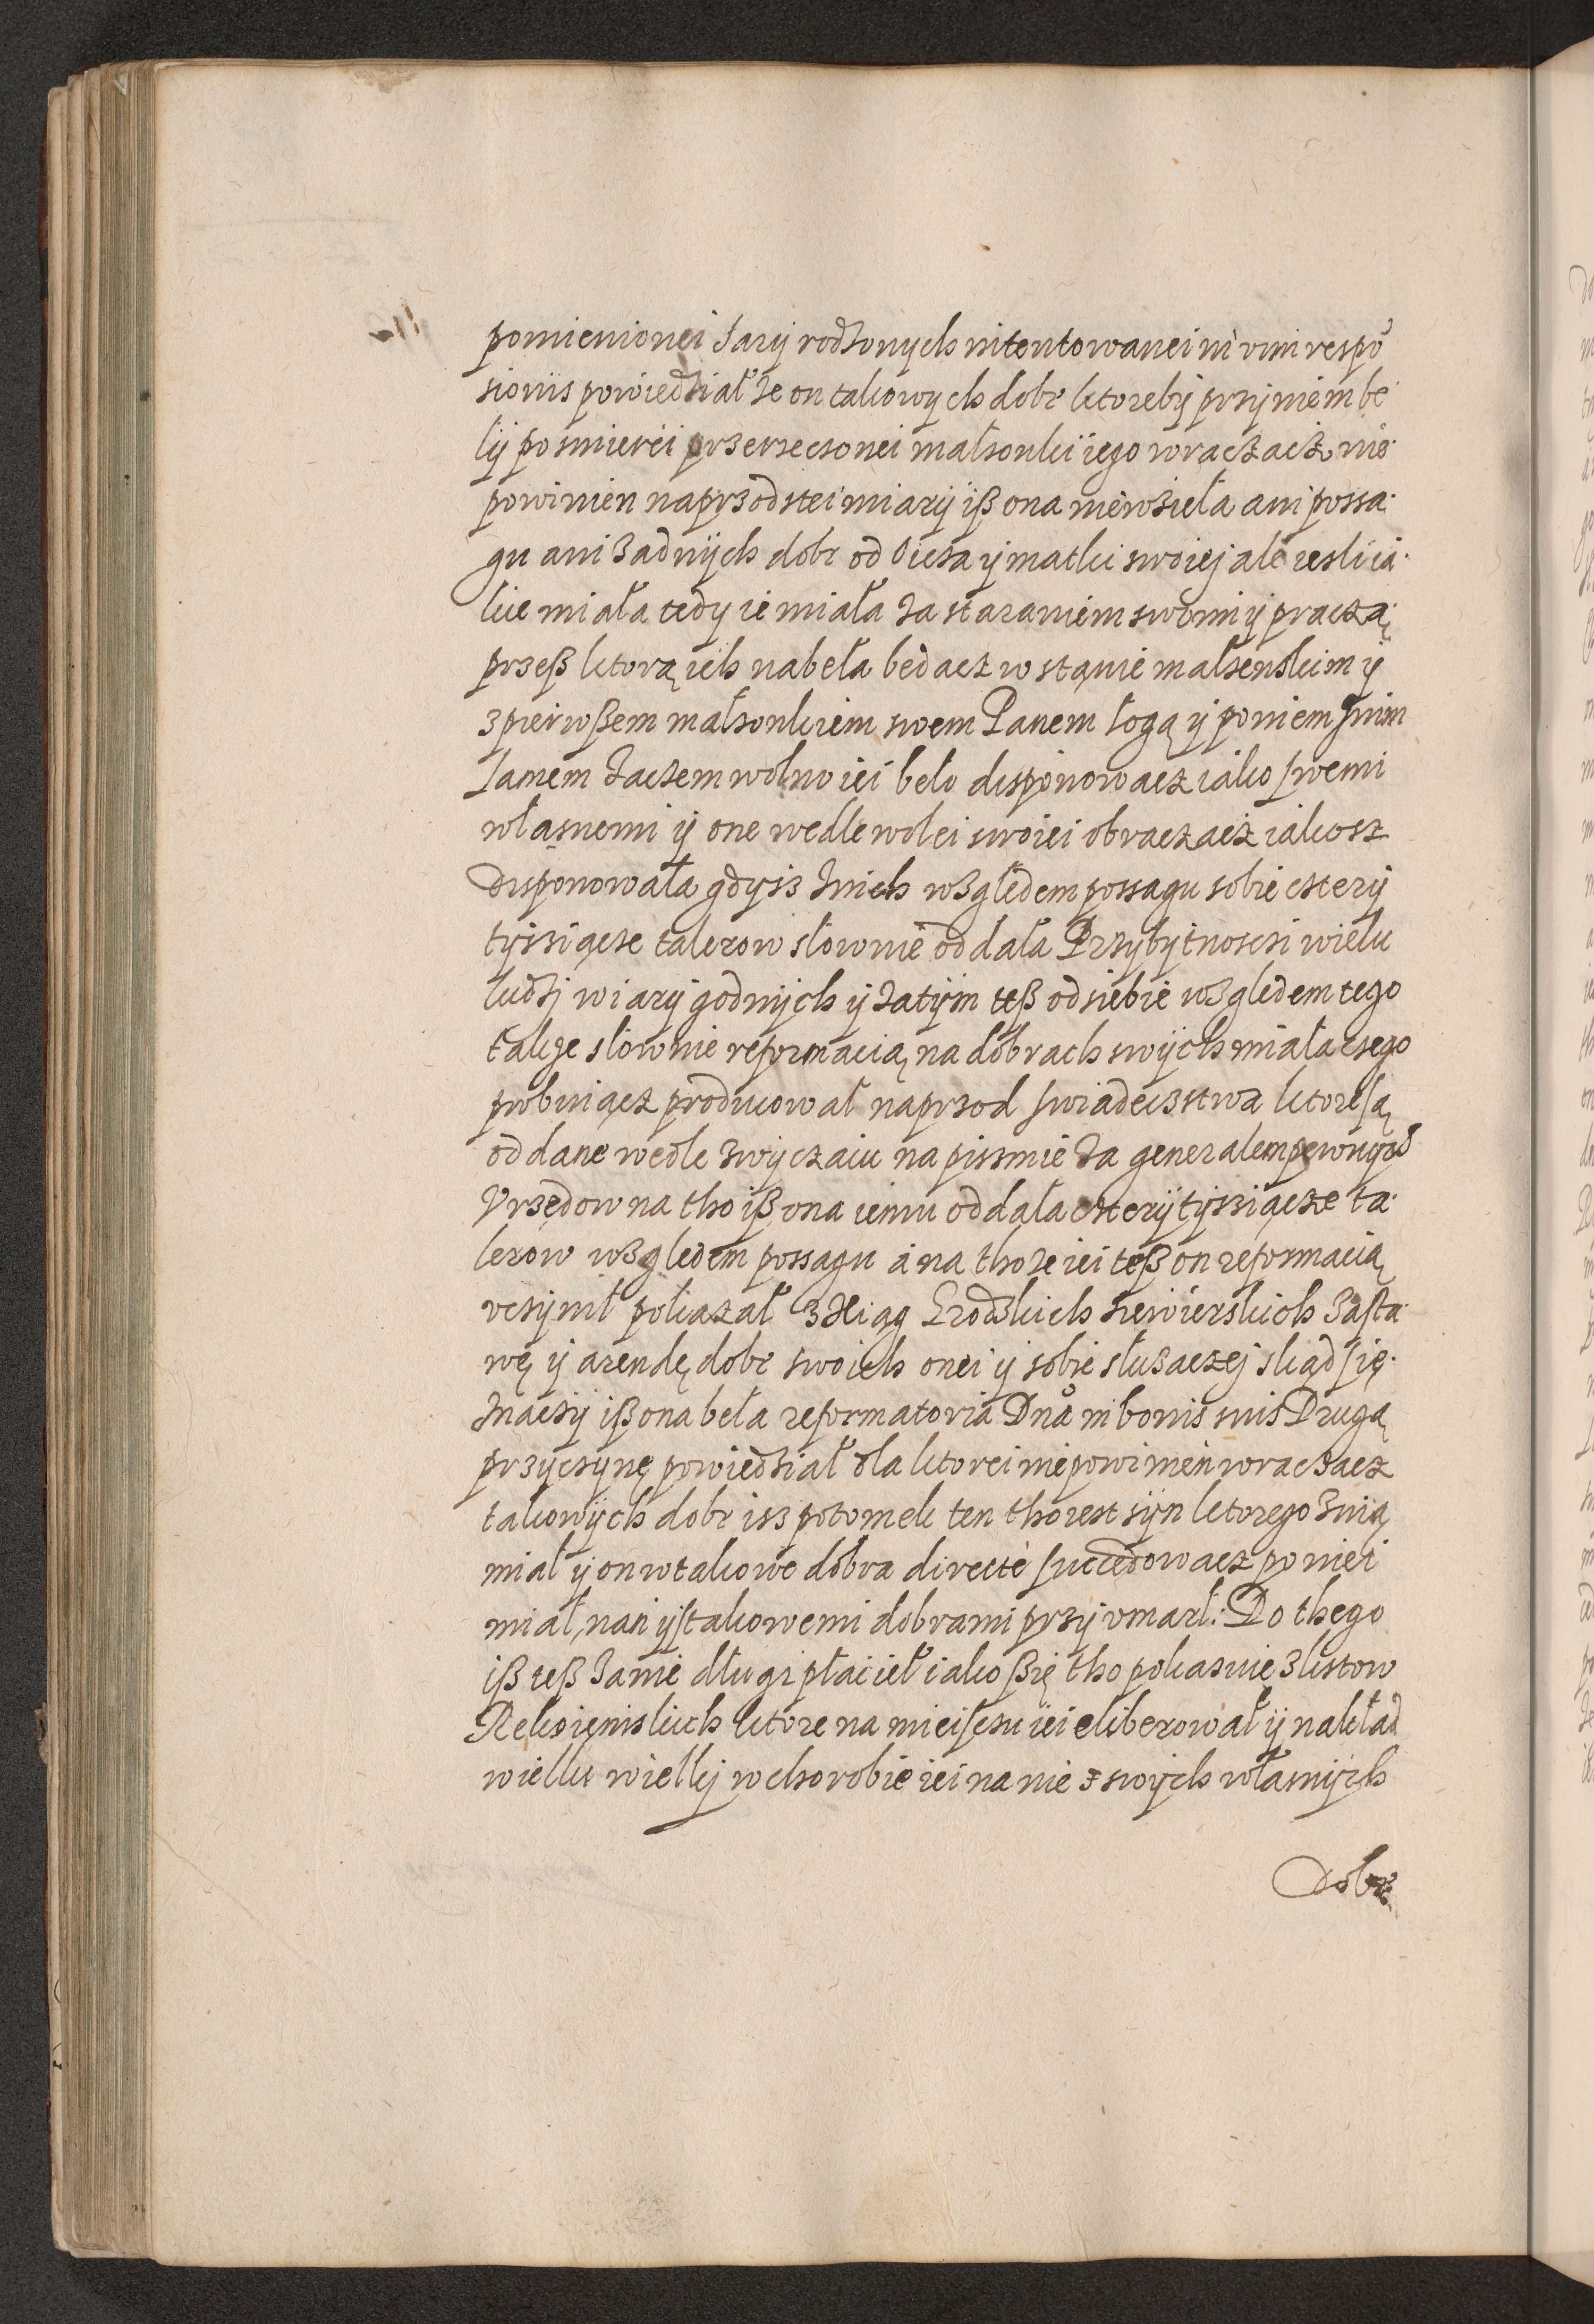 pomienionei Jarÿ rodzonych intentowanei in vim respo
sionis powiedział ze on takowych dobr ktorebÿ przÿ niem be
lÿ po smierci przerzeczonei małzonki iego wraczacz nie
powinien naprzod stei miarÿ iß ona niewzieła ani possa
gu ani zadnÿch dobr od Oicza ÿ matki swoiej ale iesli ia
kie miała tedy ie miała za staraniem swoim ÿ praczą
przeß ktorą ich nabeła bedacz w stąnie małzenskim ÿ
z pierwßem małzonkiem swem Panem Łogą ÿ poniem snim
samem zaczem wolno iei belo disponowacz iako swemi
własnemi ÿ one wedle wolei swoiei obraczacz iakosz
disponowała gdysz znich względem possagu sobie czterÿ
tÿsziącze talerow słownie oddała Przÿbÿtnosczi wielu
ludzj wiarÿ godnÿch ÿ zatÿm teß od siebie względem tego
takze słownie reformacią na dobrach swÿch miała czego
probuiącz producował naprzod swiadecztwa ktore są
oddane wedle zwÿczaiu na pissmie za generalem pewnÿch
Vrzędow na tho iß ona iemu oddała czterÿ tÿssiącze ta
lerow względem possagu a na tho ze iei teß on reformacią
vczÿnił pokazał z Xiąg Grodzkich siewierskich zasta
wę ÿ arendę dobr swoich onei ÿ sobie słuzaczej skąd się
znaczÿ iß ona beła reformatoria Dna in bonis suis Drugą
przÿczÿnę powiedział dla ktorei niepowinien wraczacz
takowÿch dobr isz potomek ten tho iest sÿn ktorego znią
miał ÿ on w takowe dobra directe succedowacz po niei
miał, nań ÿ stakowemi dobrami przÿ vmarł: Do thego
iß teß zanię długi płacieł iako ßię tho pokazuie z listow
Rekoiemskich ktore na mieisczu iei eliberował ÿ nakład
wielki wielkj w chorobie iei na nie z swÿch własnÿch
dobr